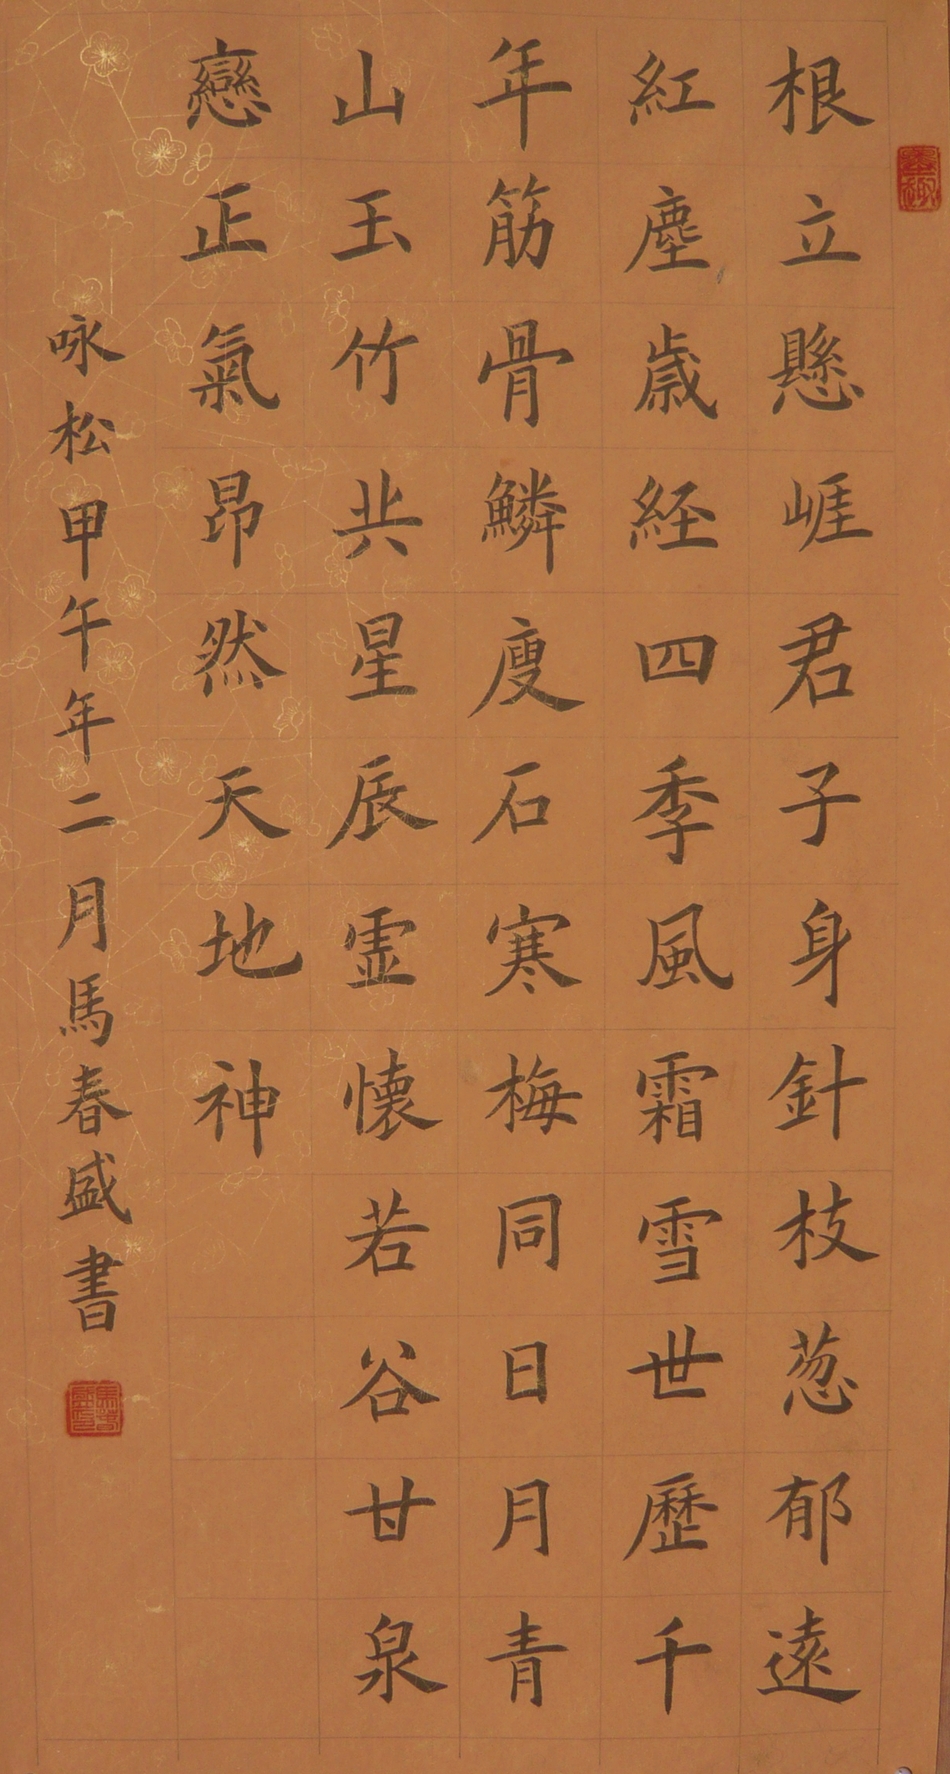 根立懸崕君子身針枝葱郁遠
紅塵歳経四季風霜雪世歷千
年筋骨鱗瘦石寒梅同日月青
山玉竹共星辰霊懐若谷甘泉
戀正氣昂然天地神
咏松甲午年二月馬春盛書